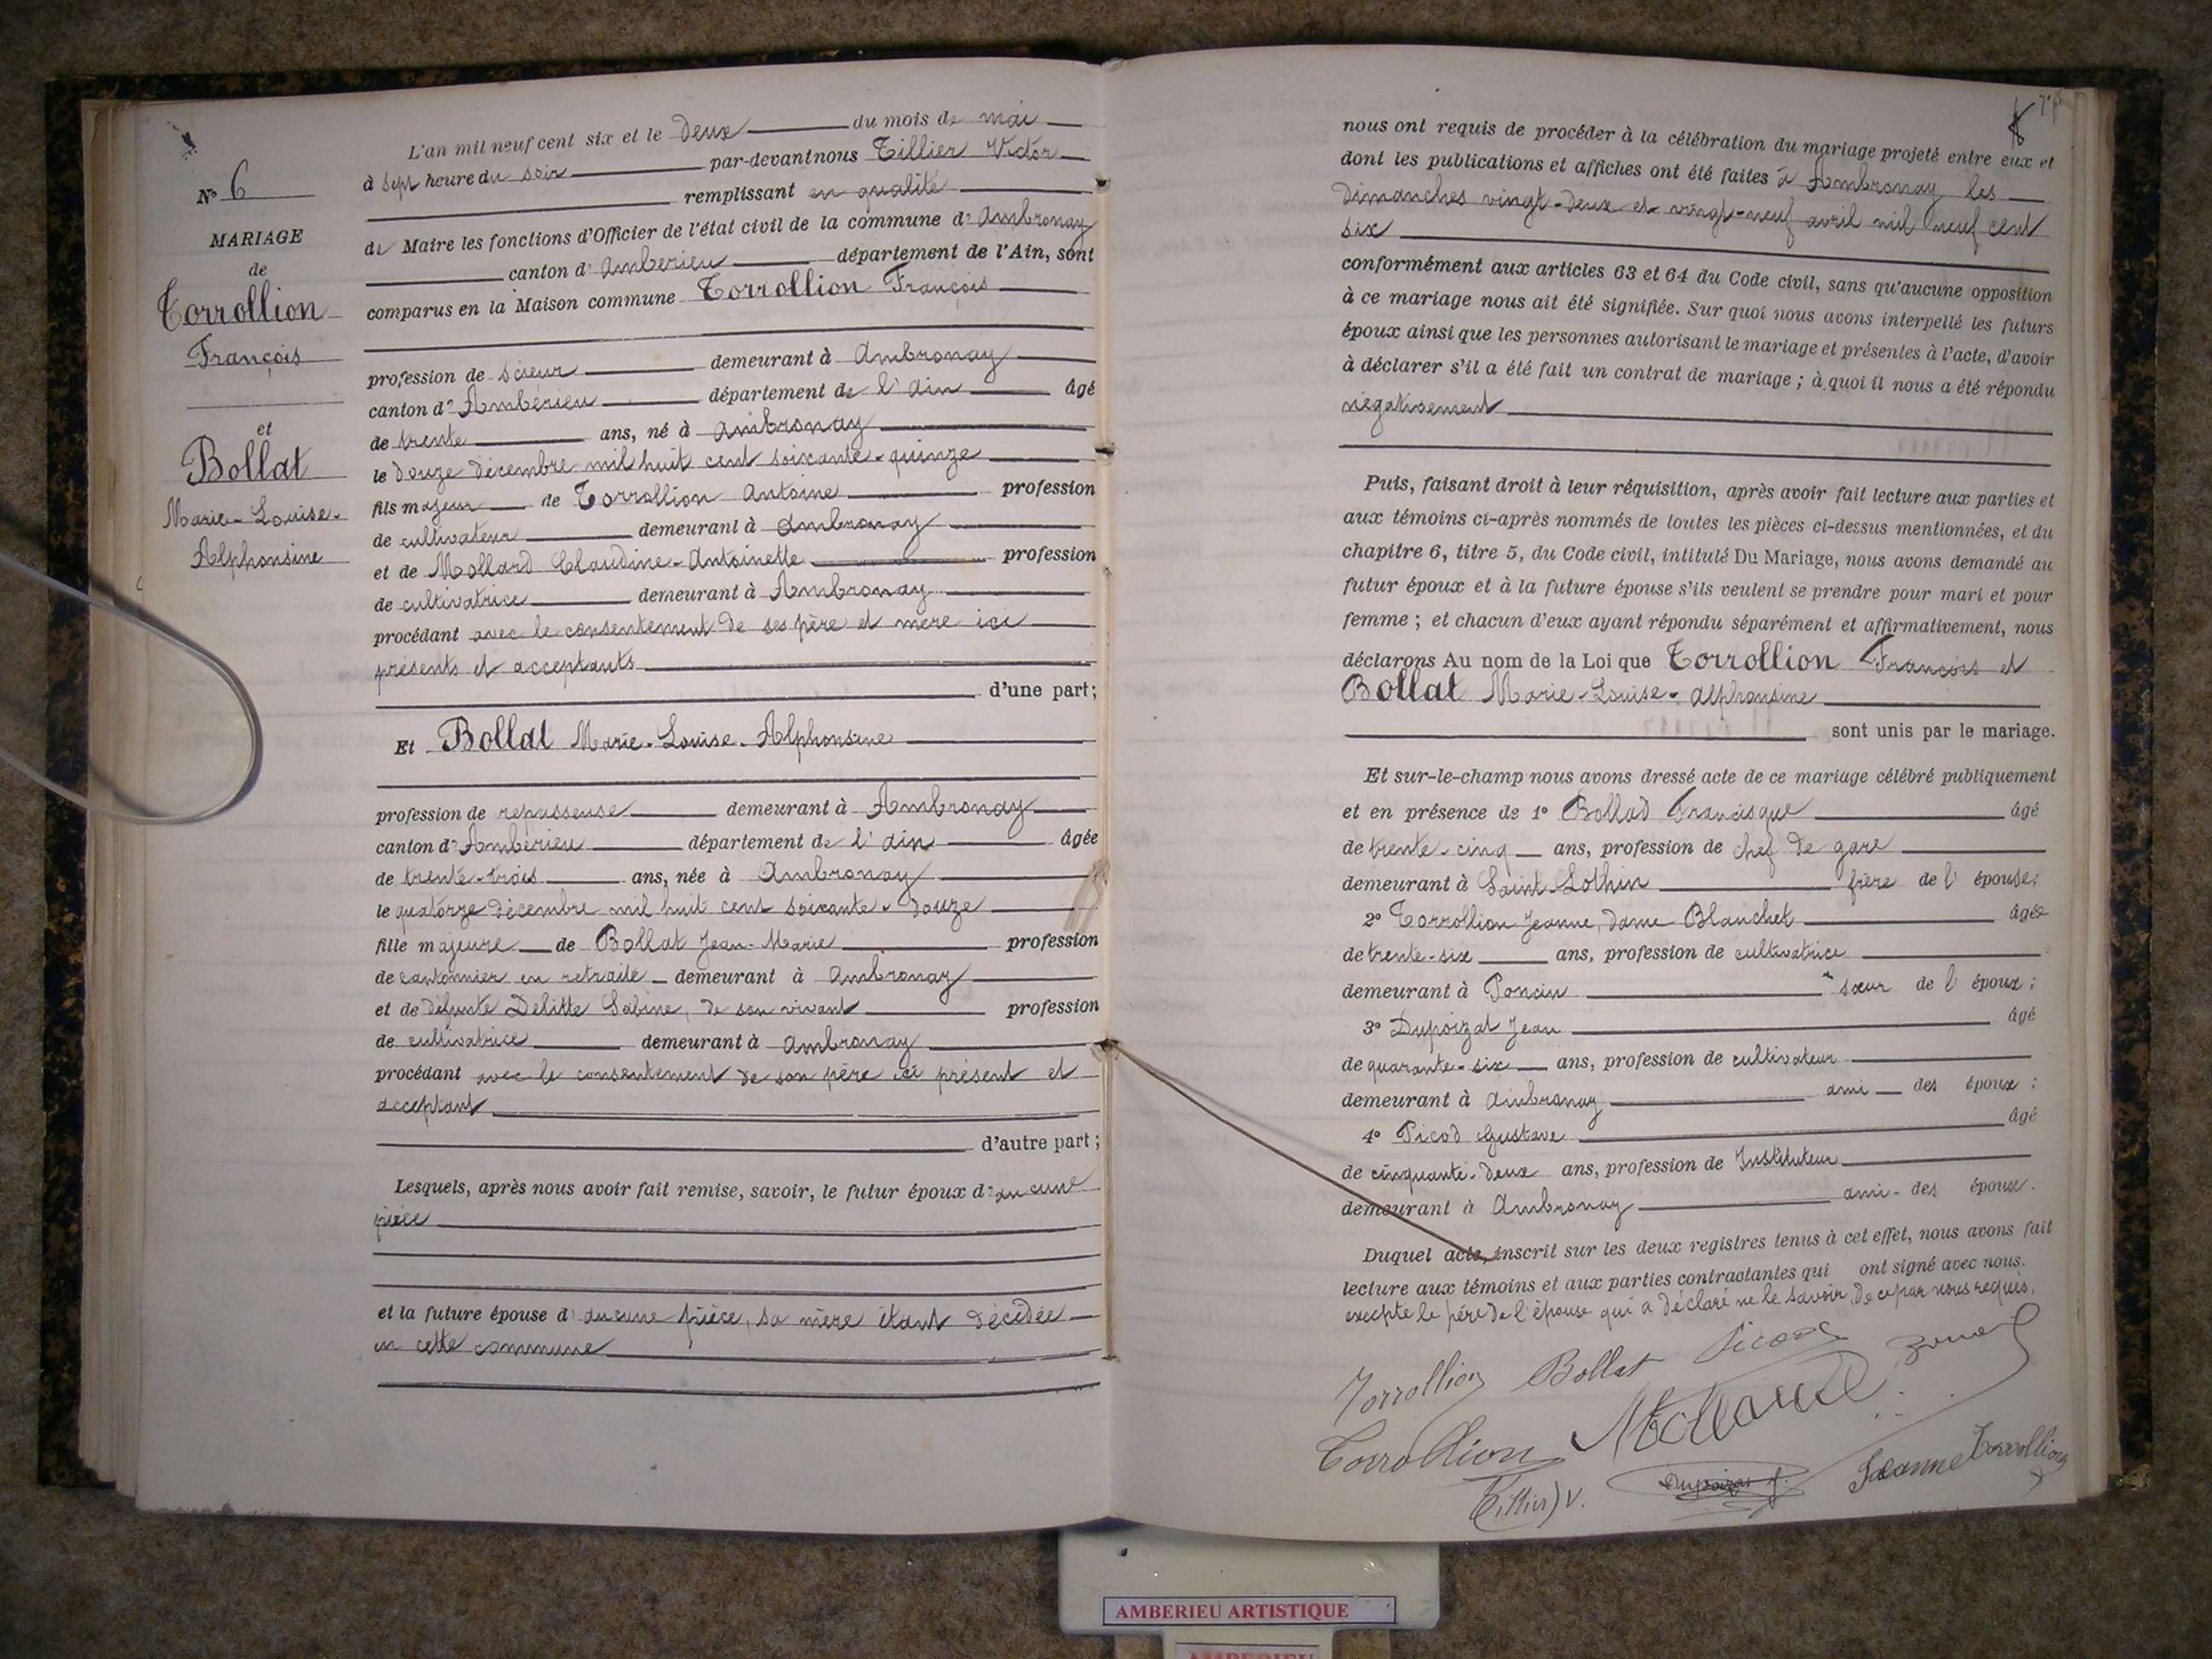 Nº 6
MARIAGE
de
Torrollion
François
et
Bollat
Marie-Louise-
Alphonsine
L'an mil neuf cent six et le deux du mois de mai
à sept heure du soir par-devant nous Tillier Victor
remplissant en qualité
de Maire les fonctions d'Officier de l'état civil de la commune d'Ambronay
canton d'Ambérieu département de l'Ain, sont
comparus en la Maison commune Torrollion François
profession de scieur demeurant à Ambronay
canton d'Ambérieu département de l'Ain âgé
de trente ans, né à Ambronay
le douze décembre mil huit cent soixante-quinze
fils majeur de Torrollion Antoine profession
de cultivateur demeurant à Ambronay
et de Mollard Claudine-Antoinette profession
de cultivatrice demeurant à Ambronay
procédant avec le consentement de ses père et mère ici
présents et acceptants
d'une part;
Et Bollat Marie-Louise-Alphonsine
profession de repasseuse demeurant à Ambronay
canton d'Ambérieu département de l'Ain âgée
de trente-trois ans, née à Ambronay
le quatorze décembre mil huit cent soixante-douze
fille majeure de Bollat Jean-Marie profession
de cantonnier en retraite demeurant à Ambronay
et de défunte Delitte Sabine, de son vivant profession
de cultivatrice demeurant à Ambronay
procédant avec le consentement de son père ici présent et
acceptant
d'autre part;
Lesquels, après nous avoir fait remise, savoir, le futur époux d'aucune
pièce
et la future épouse d'aucune pièce, sa mère étant décédée
en cette commune
nous ont requis de procéder à la célébration du mariage projeté entre eux et
dont les publications et affiches ont été faites à Ambronay les
dimanches vingt-deux et vingt-neuf avril mil neuf cent
six
conformément aux articles 63 et 64 du Code civil, sans qu'aucune opposition
à ce mariage nous ait été signifiée. Sur quoi nous avons interpellé les futurs
époux ainsi que les personnes autorisant le mariage et présentes à l'acte, d'avoir
à déclarer s'il a été fait un contrat de mariage; à quoi il nous a été répondu
négativement
Puis, faisant droit à leur réquisition, après avoir fait lecture aux parties et
aux témoins ci-après nommés de toutes les pièces ci-dessus mentionnées, et du
chapitre 6, titre 5, du Code civil, intitulé Du Mariage, nous avons demandé au
futur époux et à la future épouse s'ils veulent se prendre pour mari et pour
femme; et chacun d'eux ayant répondu séparément et affirmativement, nous
déclarons Au nom de la Loi que Torrollion François et
Bollat Marie-Louise-Alphonsine
sont unis par le mariage.
Et sur-le-champ nous avons dressé acte de ce mariage célébré publiquement
et en présence de 1º Bollad Francisque âgé
de trente-cinq ans, profession de chef de gare
demeurant à Saint-Lothin frère de l'épouse;
2º Torrollion Jeanne, dame Blanchet âgée
de trente-six ans, profession de cultivatrice
demeurant à Poncin sœur de l'époux;
3º Dupoizat Jean âgé
de quarante-six ans, profession de cultivateur
demeurant à Ambronay ami des époux:
4º Picod Gustave âgé
de cinquante-deux ans, profession de Instituteur
demeurant à Ambronay ami des époux.
Duquel acte, inscrit sur les deux registres tenus à cet effet, nous avons fait
lecture aux témoins et aux parties contractantes qui ont signé avec nous.
excepté le père de l'épouse qui a déclaré ne le savoir de ce par nous requis.
Torrollion Bollat Picod
Torrollion Mollard
Tillier V. Dupoizat J. Jeanne Torrollion
AMBERIEU ARTISTIQUE
AMBERIEU